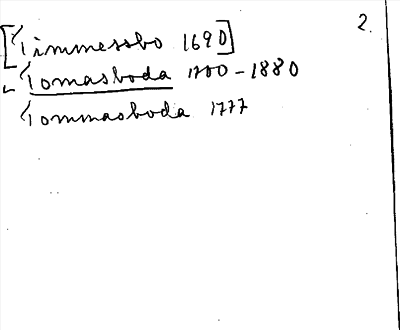 2.
[Timmessbo 1690]
Tomasboda 1700-1880
Tommasboda 1777